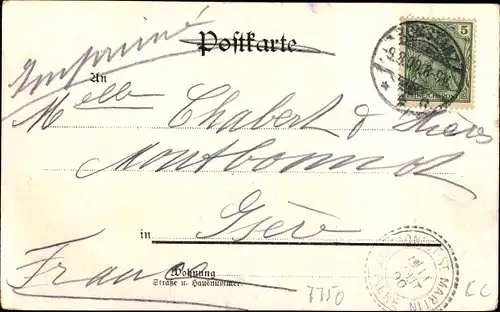 Imprimé
Postkarte
5
An
Melle Chabert
Montbonnot
in Isère
France
Wohnung
Straße u. Hausnummer
7750
EC